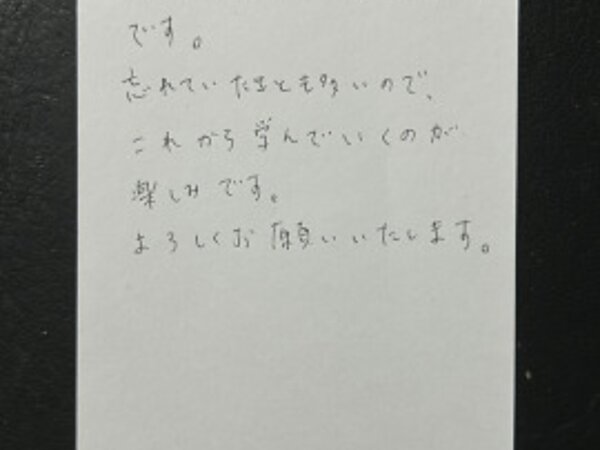 です。
忘れていたことも多いので、
これから学んでいくのが
楽しみです。
よろしくお願いいたします。